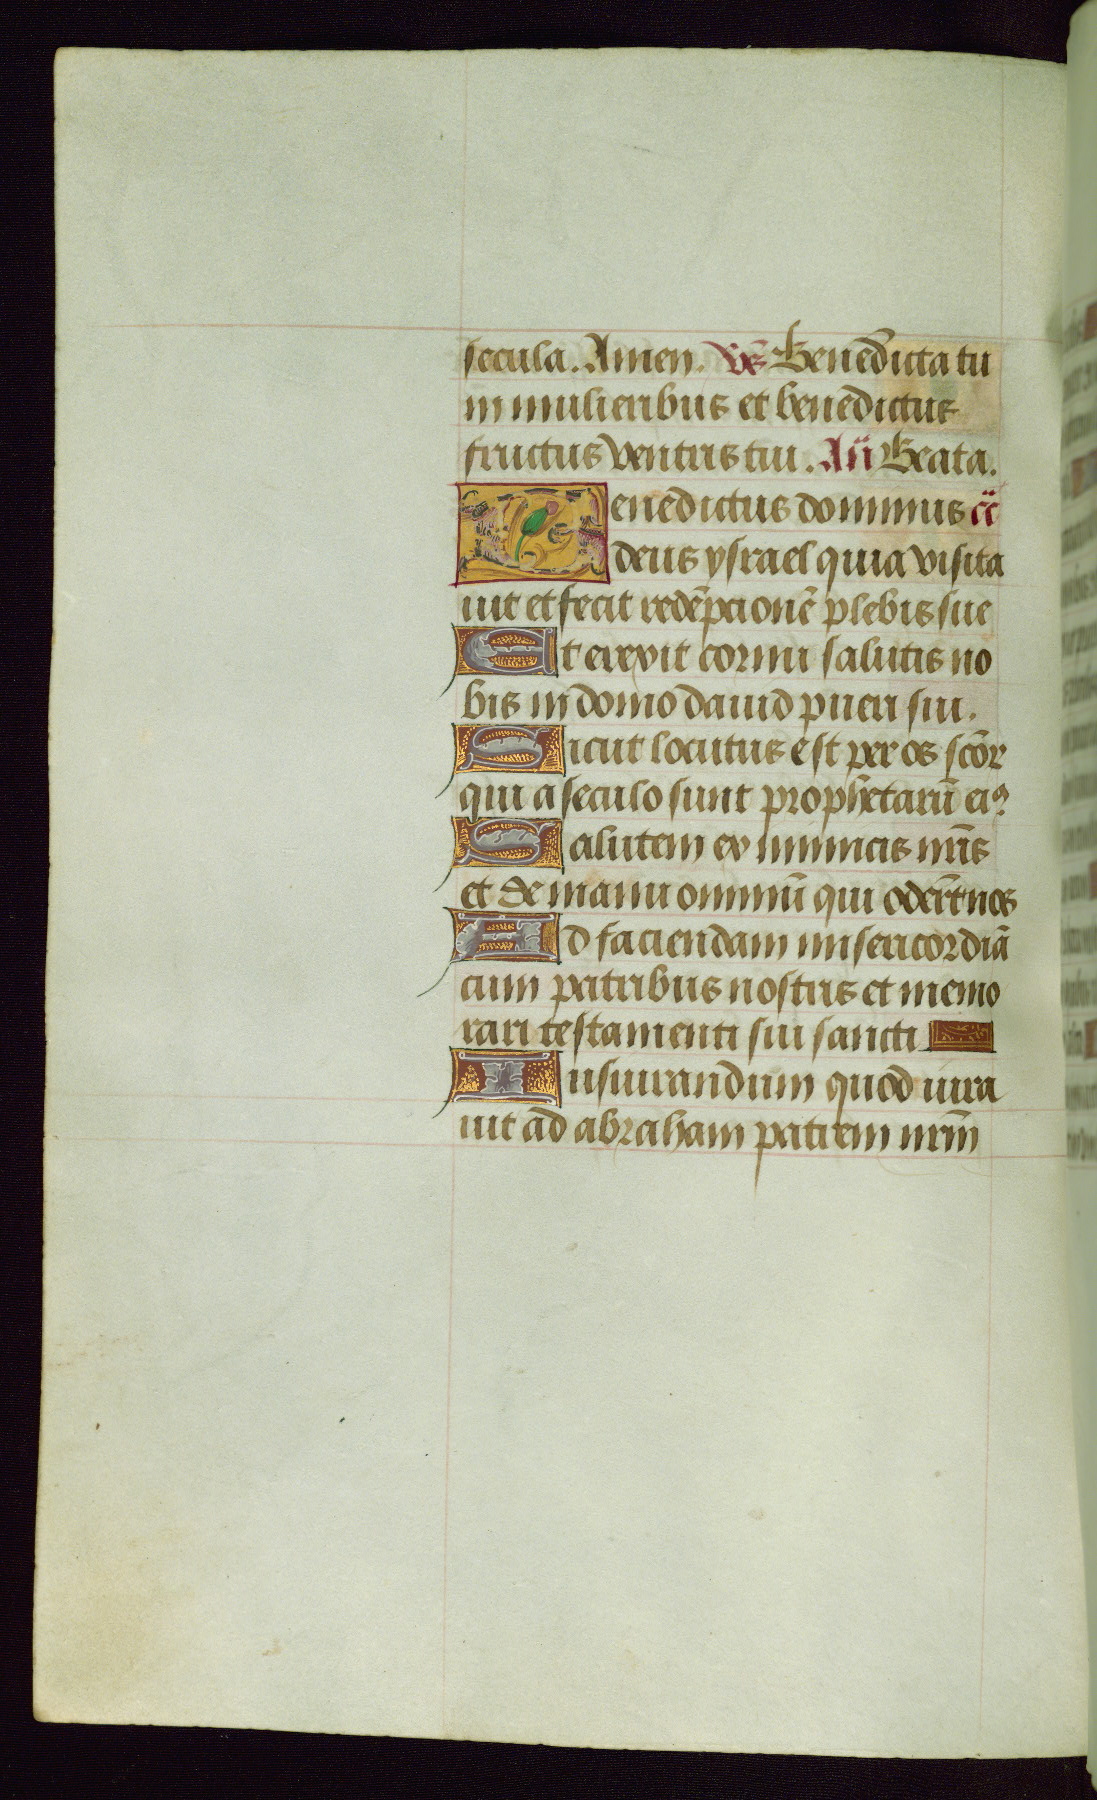 secula. Amen. Vs̄ Benedicta tu
in mulieribus et benedictus
fructus ventris tui. An̄ Beata.
Benedictus dominus cc̄
deus ysrael quia visita
uit et fecit redēpcionē plebis sue
Et erexit cornu salutis no
bis in domo dauid pueri sui.
Sicut locutus est per os scōr
qui a seculo sunt prophetarū eiꝰ
Salutem ex inimicis nr̄is
et de manu omniū qui oder̄t nos
Ad faciendam misericordiā
cum patribus nostris et memo
rari testamenti sui sancti
Iusiurandum quod iura
uit ad abraham patrem nr̄m